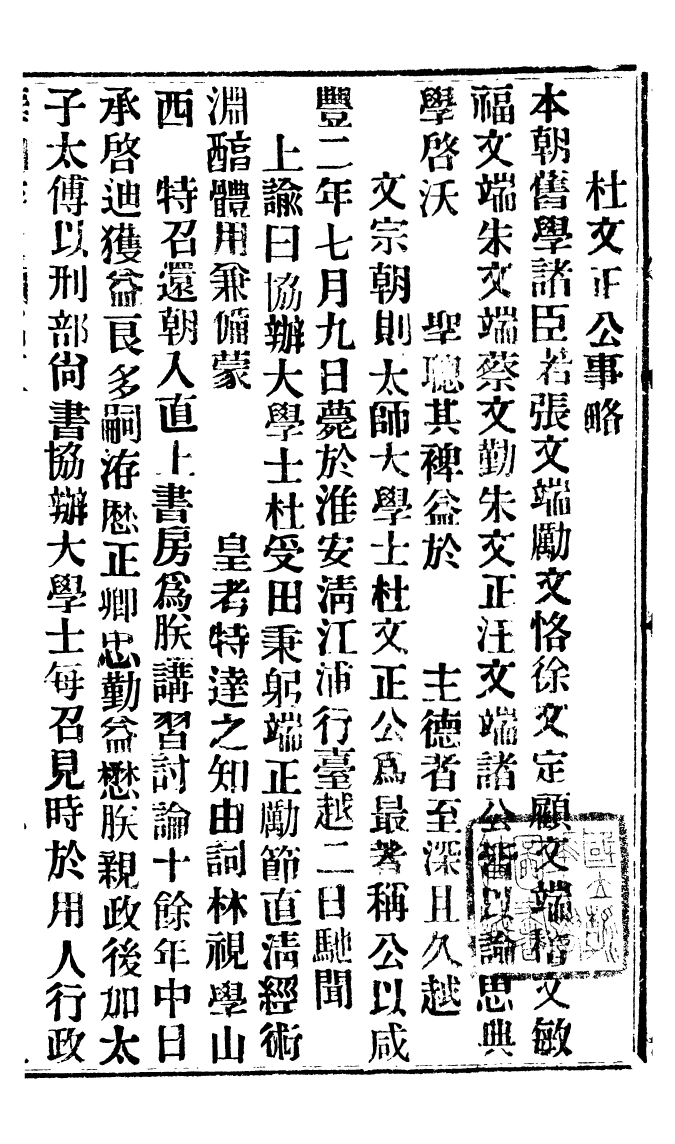 杜文正公事略
本朝舊學諸臣若張文端勵文恪徐文定顧文端嵇文敏
福文端朱文端蔡文勤朱文正汪文端諸公皆以論思典
學啓沃 聖聰其裨益於 主德者至深且久越
文宗朝則太師大學士杜文正公爲最著稱公以咸
豐二年七月九日薨於淮安淸江浦行臺越二日馳聞
上諭曰協辦大學士杜受田秉躬端正勵節直淸經術
淵醕體用兼備蒙 皇考特達之知由詞林視學山
西 特召還朝入直上書房爲朕講習討論十餘年中日
承啓迪獲益良多嗣洊歷正卿忠勤益懋朕親政後加太
子太傅以刑部尙書協辦大學士每召見時於用人行政